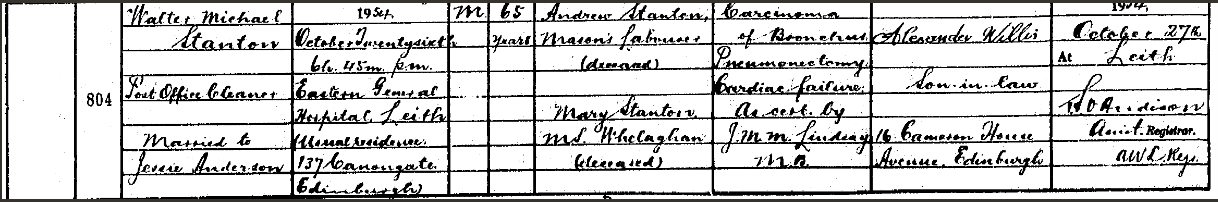 804
Walter Michael
Stanton
Post Office Cleaner
Married to
Jessie Anderson
1954,
October Twentysixth
6h. 45m. p.m.
Eastern General
Hospital, Leith
(Usual residence.
137 Canongate
Edinburgh)
M
65
Years
Andrew Stanton,
Mason's Labourer
(deceased)
Mary Stanton,
M.S. Whelaghan
(deceased)
Carcinoma
of Bronchus
Pneumonectomy
Cardiac failure
As cert. by
J. M. M. Lindsay
M.B.
Alexander Willis
Son-in-law
16 Cameron House
Avenue, Edinburgh
1954,
October 27th
At Leith
Andison
Assist. Registrar.